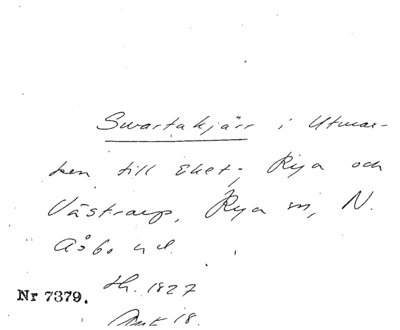 Swartakjärr i Utmar-
ken till Eket, Rya och
Västraup, Rya sn, N.
Åsbo hd.
Nr 7379.
1827
18.